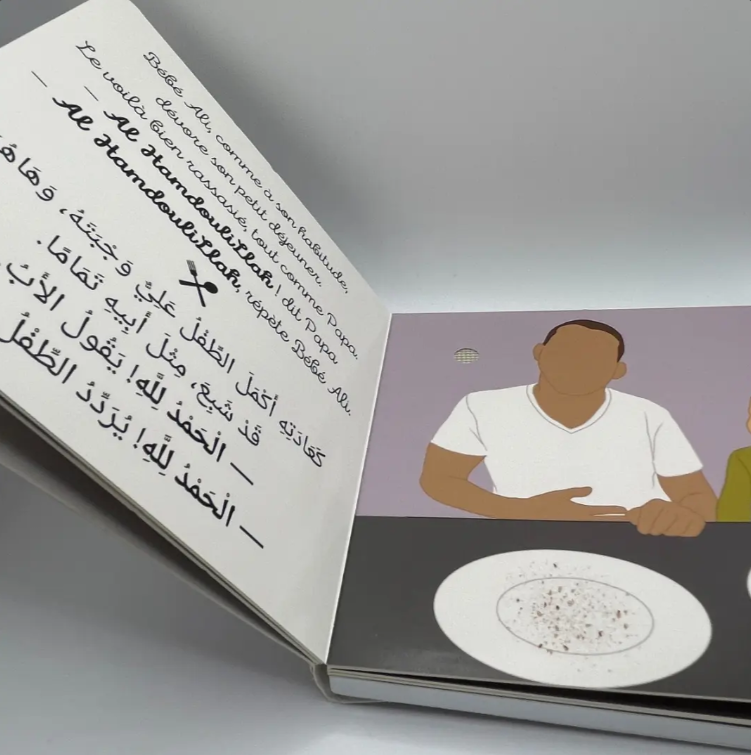 Bébé Ali, comme à son habitude,
dévore son petit déjeuner.
Le voilà bien rassasié, tout comme Papa.
— Al HamdouliLlah ! dit Papa.
— Al HamdouliLlah, répète Bébé Ali.
كَعَادَتِهِ أَكْمَلَ الطِّفْلُ عَلِيٌّ وَجْبَتَهُ، وَهَا هُوَ
قَدْ شَبِعَ، مِثْلَ أَبِيهِ تَمَامًا.
— الْحَمْدُ لِلَّهِ! يَقُولُ الأَبُ
— الْحَمْدُ لِلَّهِ! يُرَدِّدُ الطِّفْلُ